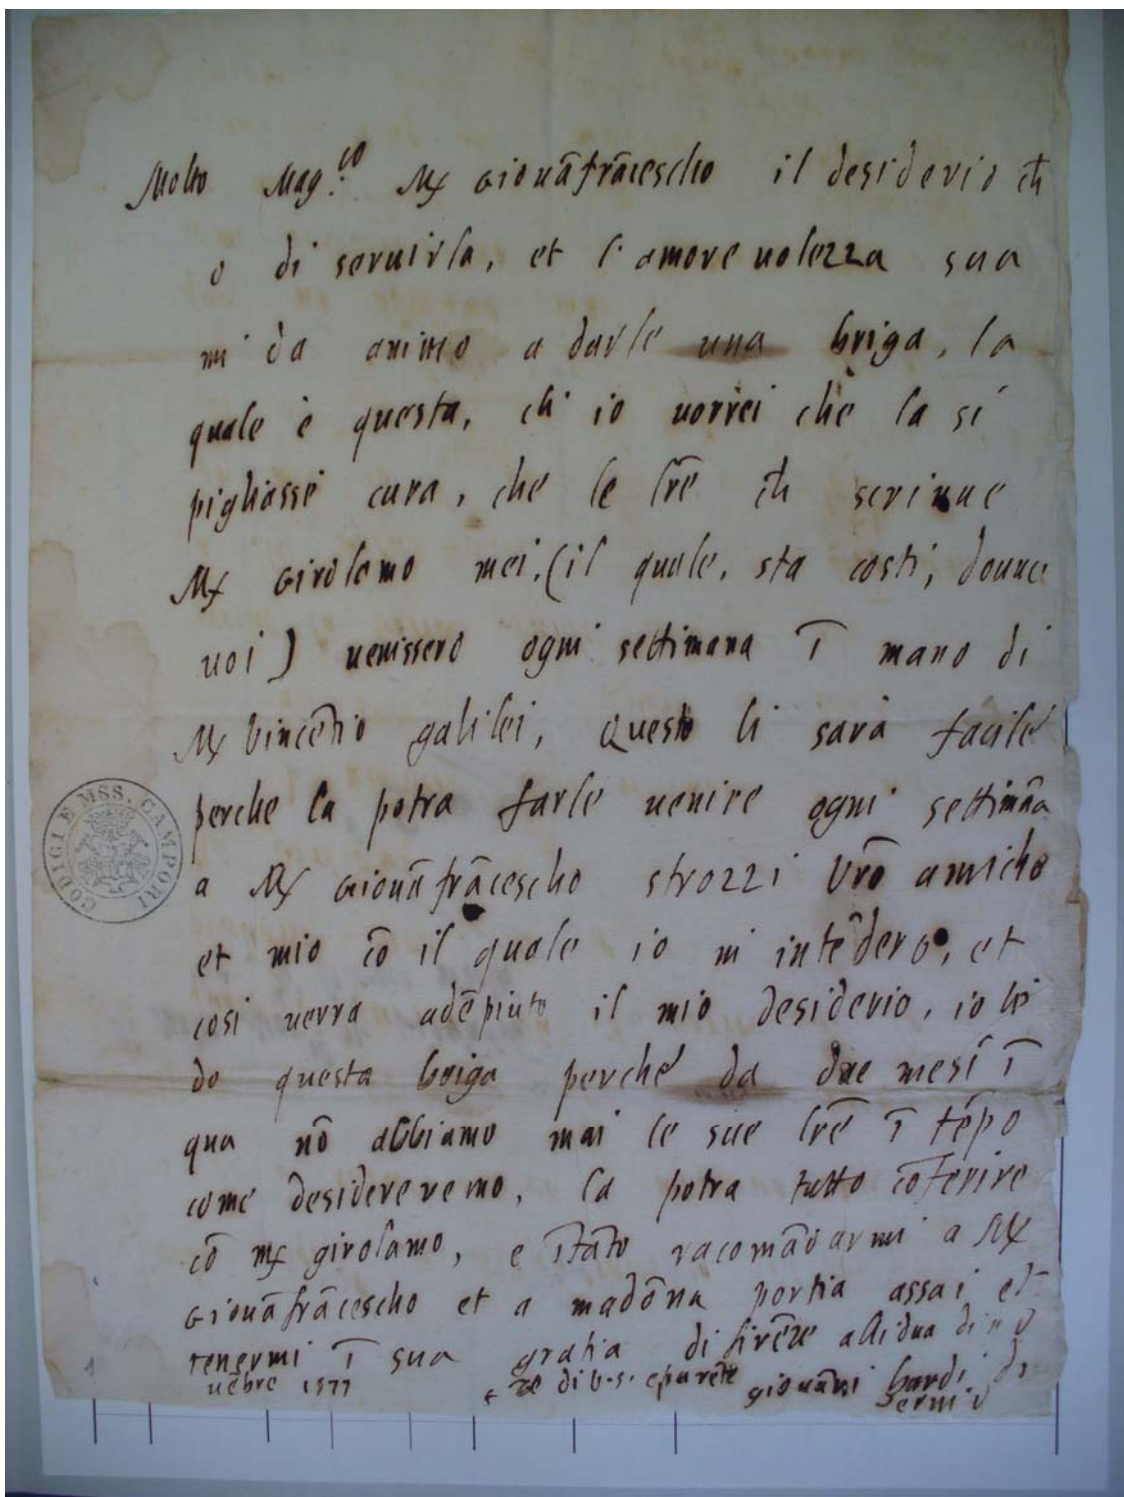 Molto Mag.co Mx Giouāfrācescho il desiderio ch̄
o di seruirla, et l'amoreuolezza sua
mi da animo a darle una briga, la
quale è questa, ch' io uorrei che la si
pigliassi cura, che le lr̄e ch̄ scriuue
Mx Girolamo mei, (il quale, sta costi, douue
uoi) uenissero ogni settimana ī mano di
Mx Vincētio galilei, Questo li sarà facile
perche la potra farle uenire ogni settimāa
a Mx Giouāfrācescho strozzi Vrō amicho
et mio cō il quale io m intēdero, et
cosi uerra adēpiuto il mio desiderio, io li
do questa briga perche da due mesi ī
qua nō abbiamo mai le sue lr̄e ī tēpo
come desidereremo, la potra tutto cōferire
cō mx girolamo, e ītāto racomādarmi a Mx
Giouāfrācescho et a madōna portia assai et
tenermi ī sua gratia di firēze alli dua di no
uēbre 1577
di V.S. e parēte giouāni bardi di
uernio
CODICI E MSS. CAMPORI
1